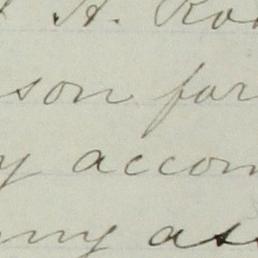 A. Ro
son for
y accom
ny ass